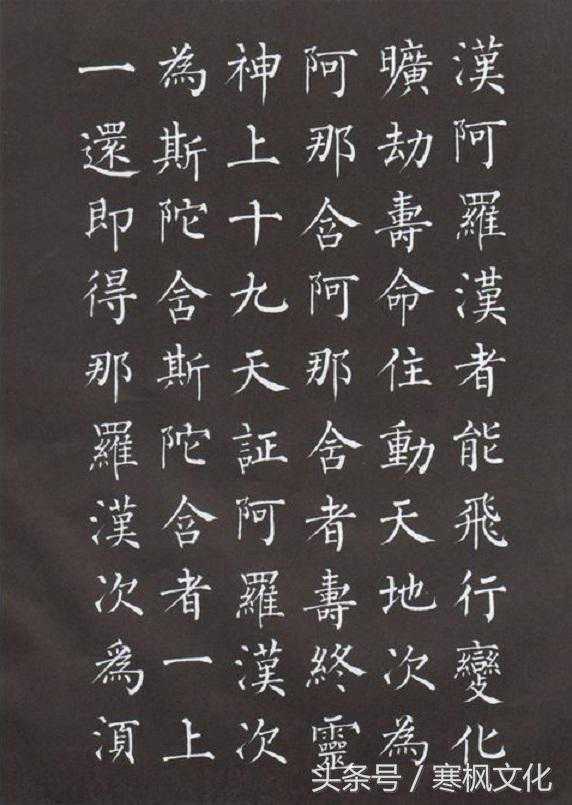 漢阿羅漢者能飛行變化
曠劫壽命住動天地次為
阿那含阿那含者壽終靈
神上十九天証阿羅漢次
為斯陀含斯陀含者一上
一還即得那羅漢次爲湏
头条号/寒枫文化